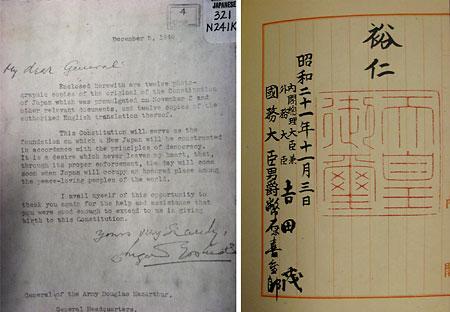 JAPANESE
321
N241K
4
December 5, 1946
My dear General:
Enclosed herewith are twelve photo-
grapic copies of the original of the Constitution
of Japan which was promulgated on November 3 and
other relevant documents, and twelve copies of the
authorized English translation thereof.
This Constitution will serve as the
foundation on which a New Japan will be constructed
in accordance with the principles of democracy.
It is a desire which never leaves my heart, that,
through its proper enforcement, the day will come
soon when Japan will occupy an honored place among
the peace-loving peoples of the world.
I avail myself of this opportunity to
thank you again for the help and assistance that
you were good enough to extend to me in giving
birth to this Constitution.
Yours very sincerely,
Shigeru Yoshida
General of the Army Douglas MacArthur,
General Headquarters.
裕仁
天皇
御璽
昭和二十一年十一月三日
內閣總理大臣兼
外務大臣
吉田茂
國務大臣男爵幣原喜重郎